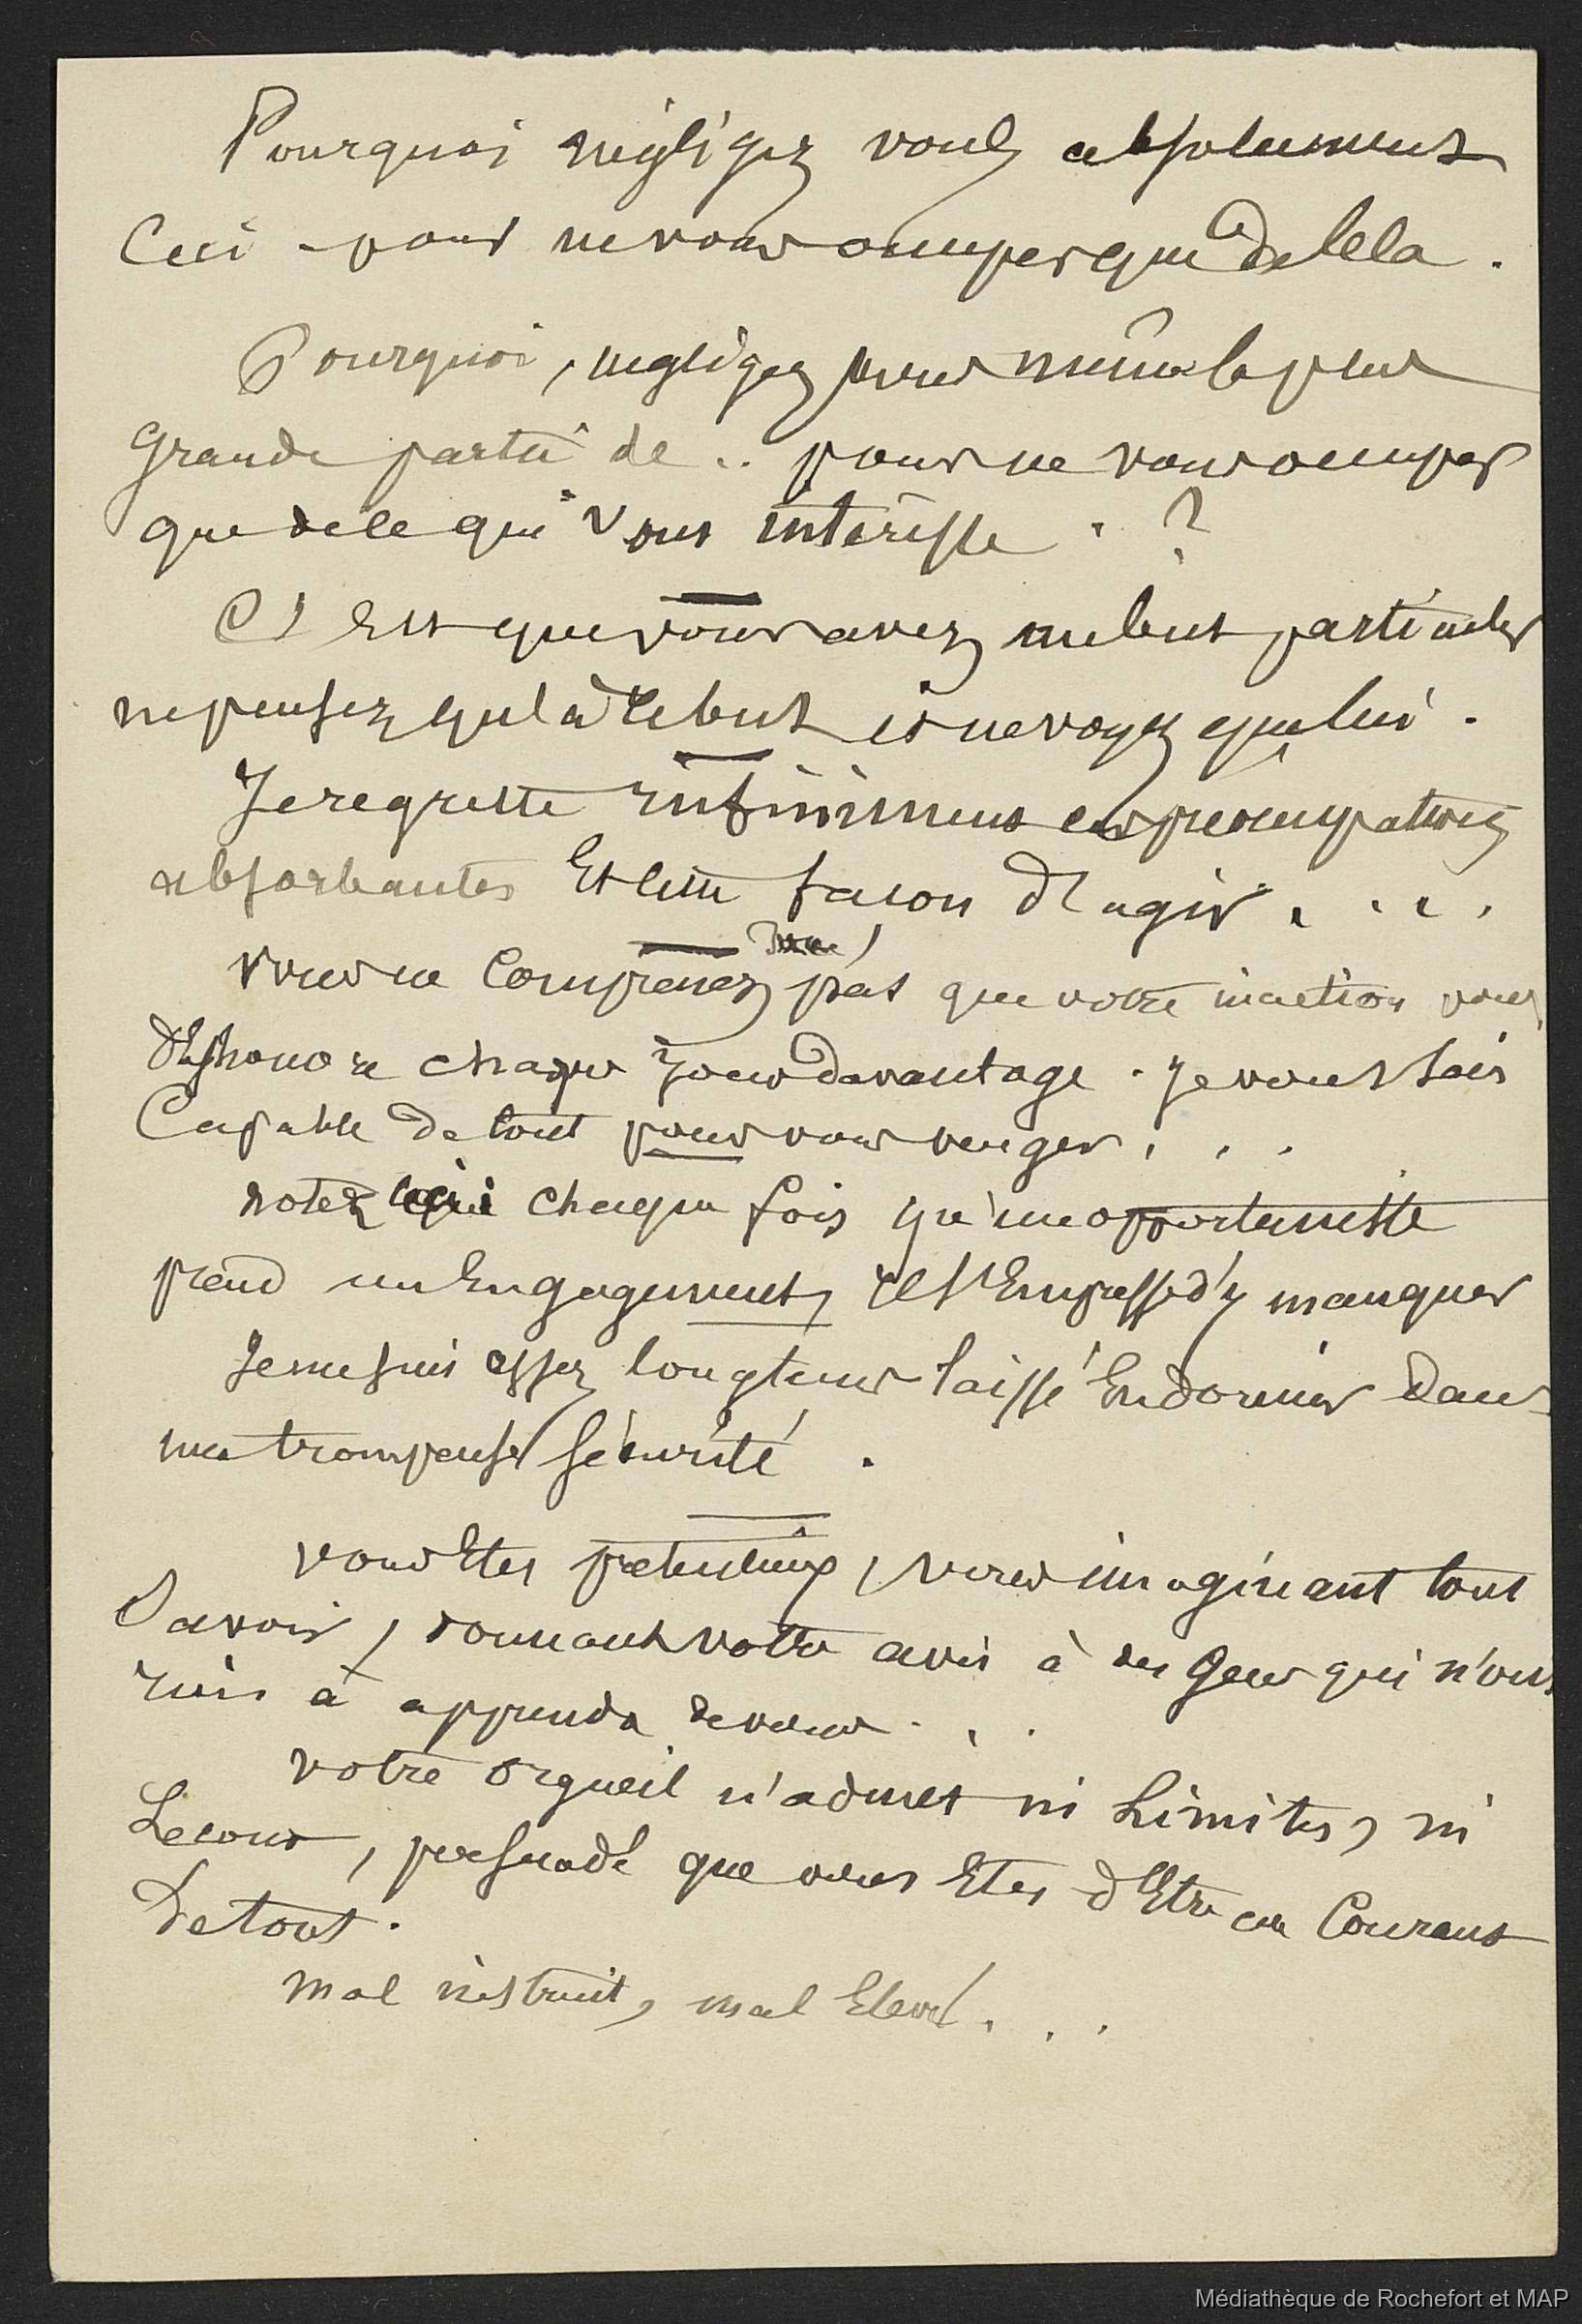 Pourquoi négligez vous absolument
Ceci - pour ne vous occuper que de Cela .
Pourquoi, negligez vous même la plus
Grande partie de .. pour ne vous occuper
que de ce qui vous intéresse . ?
C'Est que vous avez un but particulier
ne pensez qu'à ce but et ne voyez que lui .
Je regrette infiniment ces préoccupations
absorbantes Et cette facon d'agir . . . .
vous ne Comprenez pas que votre inaction vous
déshonore chaque Jour davantage . Je vous sais
Capable de tout pour vous venger . . .
notez ceci chaque fois qu'un opportuniste
prend un Engagement, il s'Empresse d'y manquer
Je me suis assez longtemps laissé Endormir dans
ma trompeuse sécurité .
vous Etes prétentieux, vous imaginant tout
Savoir, donnant votre avis à des Gens qui n'ont
rien à apprendre de vous . . .
votre orgueil n'admet ni Limites, ni
Lecons, persuadé que vous Etes d'Etre au Courant
De tout .
mal instruit, mal Elevé . . .
Médiathèque de Rochefort et MAP